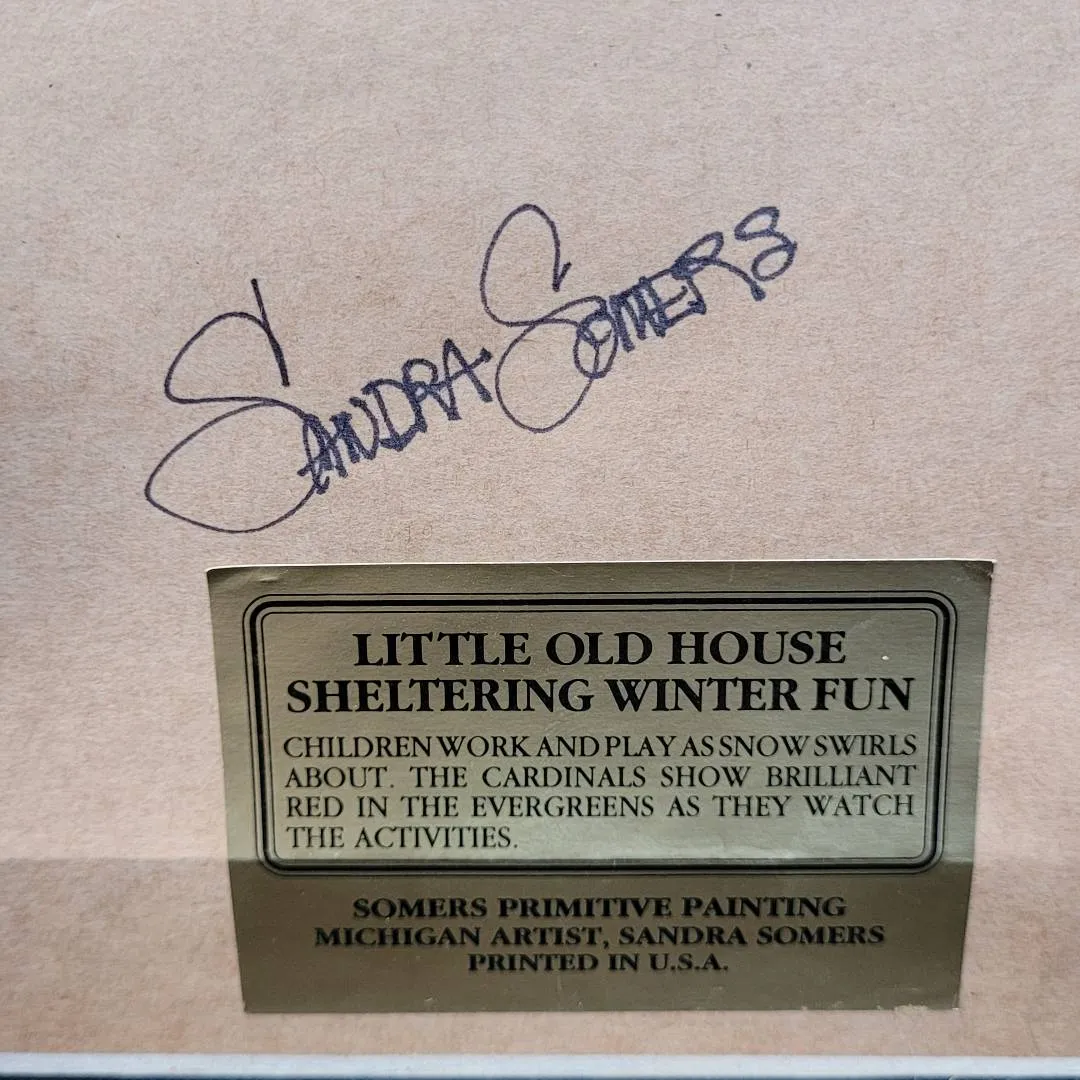 SANDRA SOMERS
LITTLE OLD HOUSE
SHELTERING WINTER FUN
CHILDREN WORK AND PLAY AS SNOW SWIRLS
ABOUT. THE CARDINALS SHOW BRILLIANT
RED IN THE EVERGREENS AS THEY WATCH
THE ACTIVITIES.
SOMERS PRIMITIVE PAINTING
MICHIGAN ARTIST, SANDRA SOMERS
PRINTED IN U.S.A.